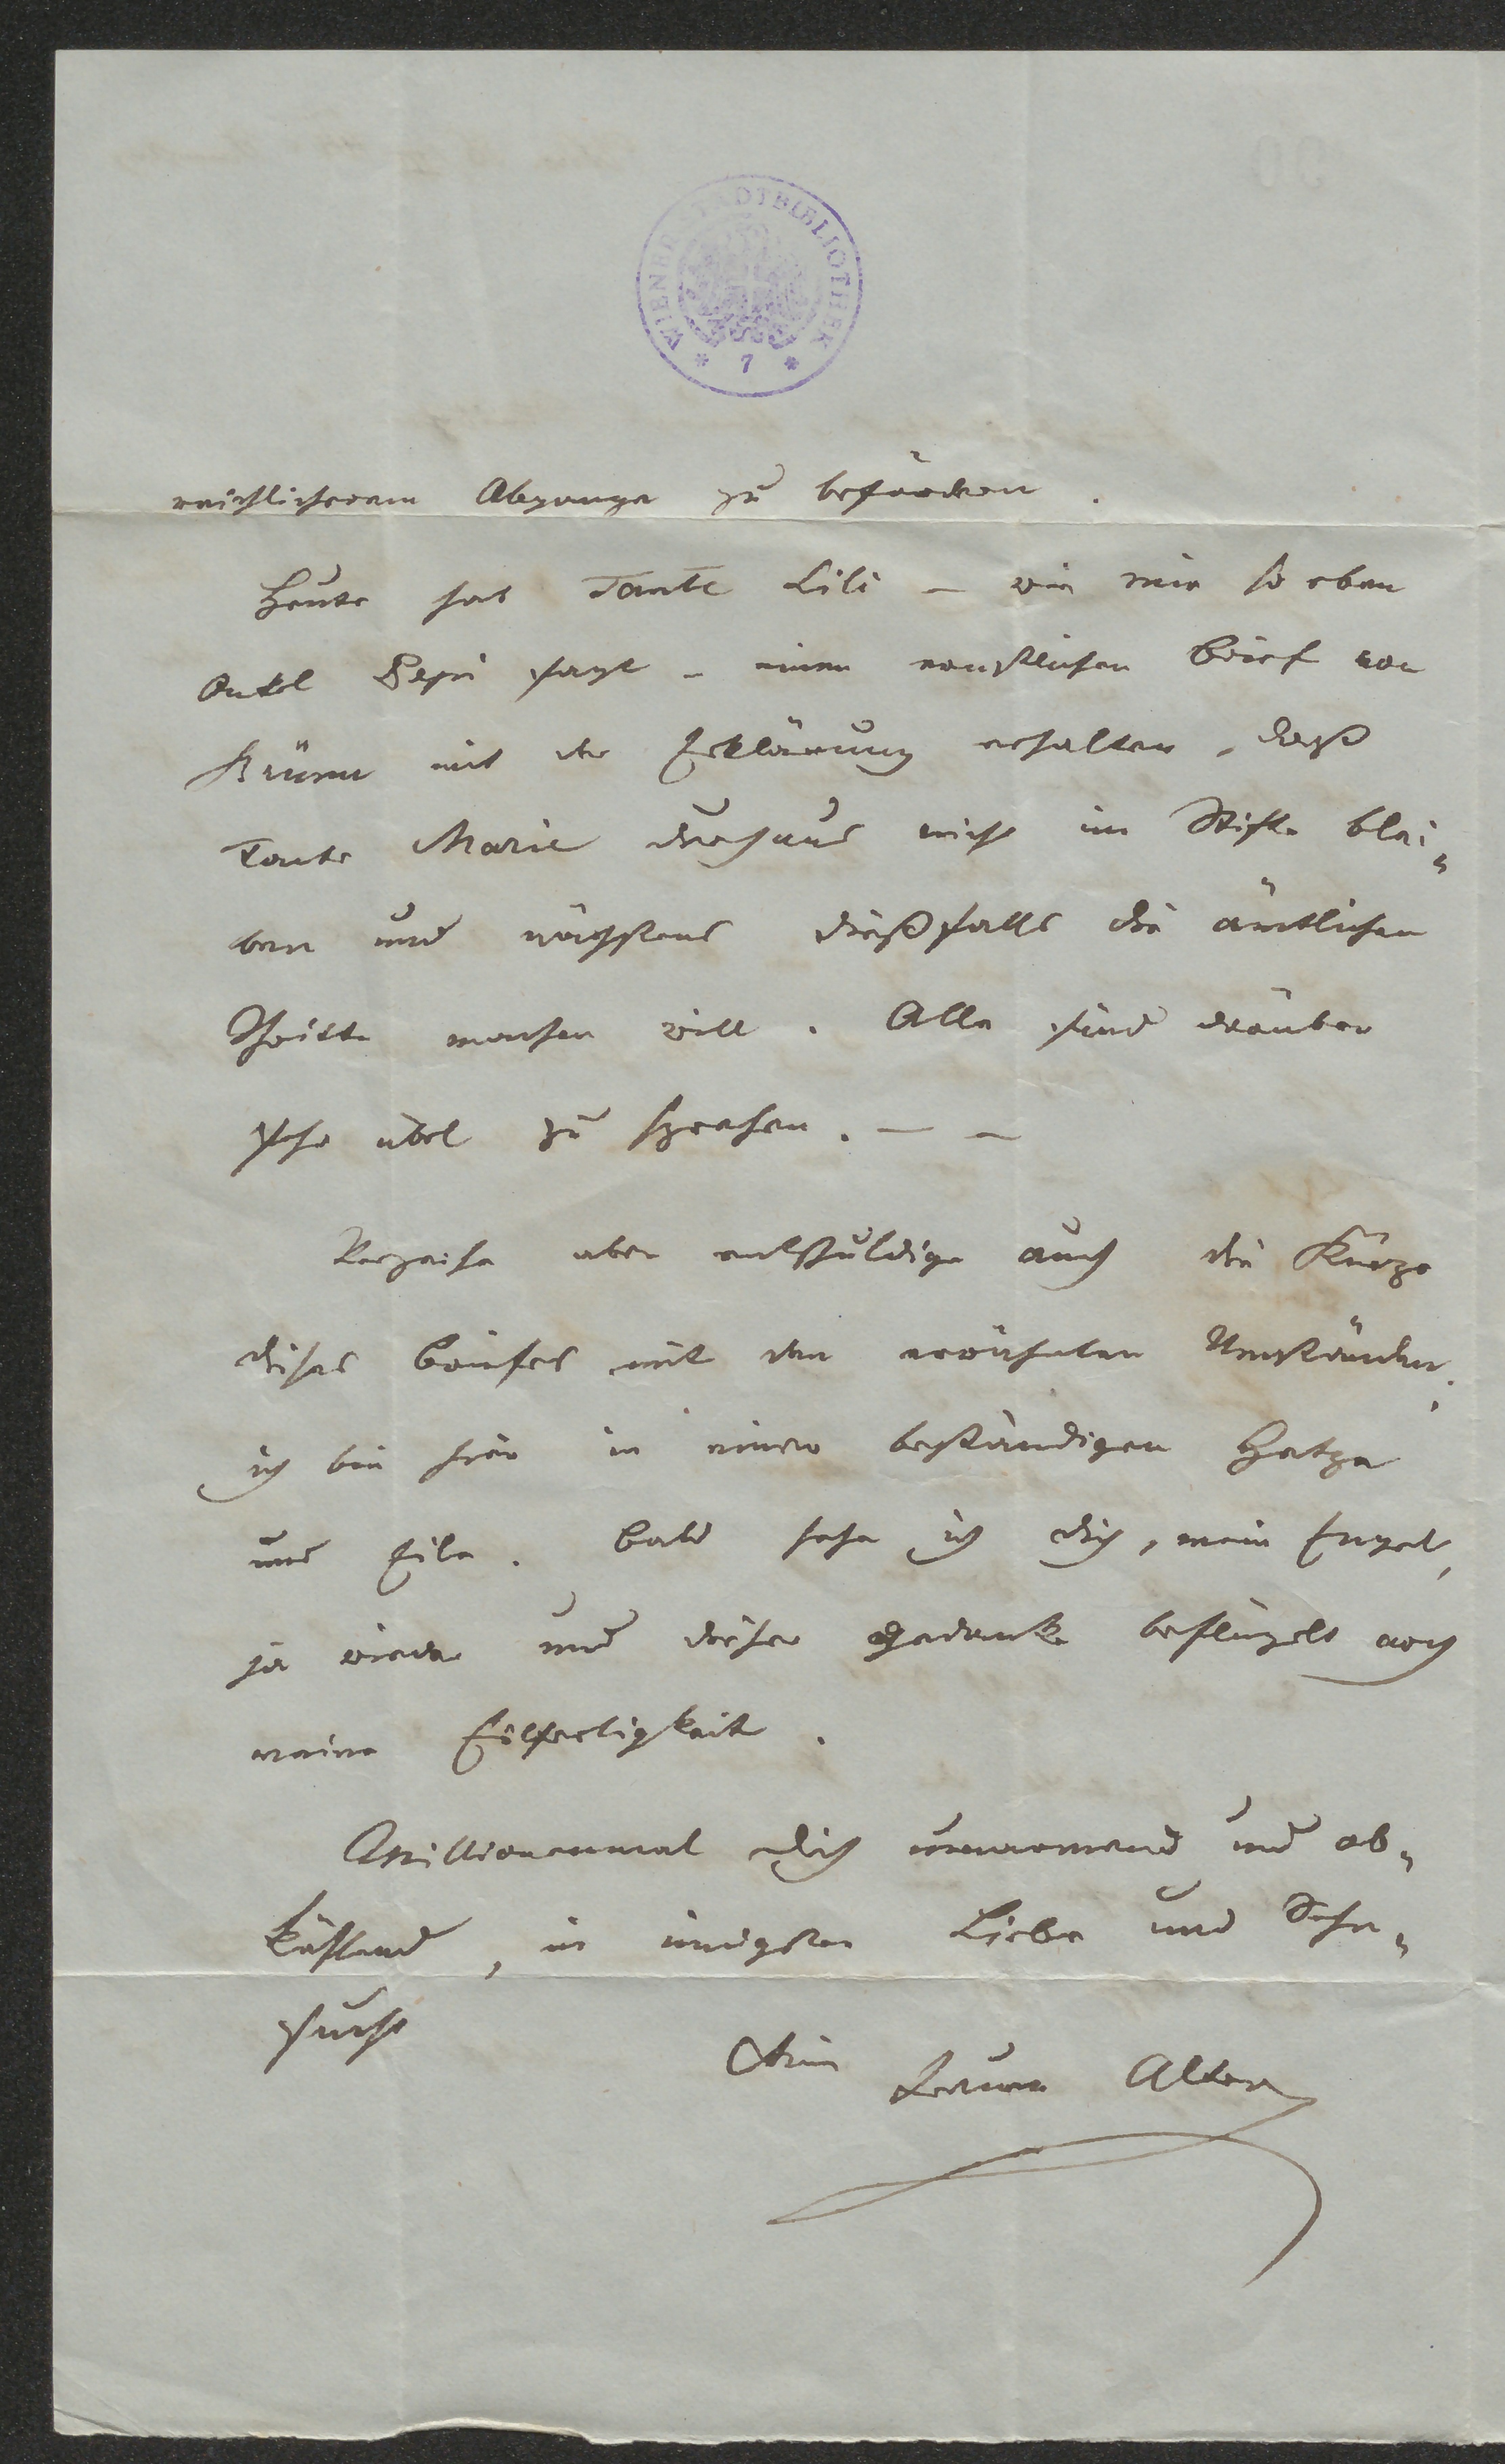 WIENER STADTBIBLIOTHEK
* 7 *
reichlicherem Abgange zu befördern.
Heute hat Tante Lili – wie mir so eben
Onkel Pepi sagt – einen ernstlichen Brief von
Brünn mit der Erklärung erhalten, daß
Tante Marie durchaus nicht im Stifte blei„
ben und nächstens dießfalls die ämtlichen
Schritte machen will. Alle sind darüber
sehr übel zu sprechen. – –
Verzeihe aber entschuldige auch die Kürze
dieses Briefes mit den erwähnten Umständen;
ich bin hier in einer beständigen Hetze
und Eile. Bald sehe ich dich, mein Engel,
ja wieder und dieser Gedanke beflügelt noch
meine Eilfertigkeit.
Millionenmal dich umarmend und ab„
küssend, in innigster Liebe und Sehn„
sucht
Dein treuer Alter